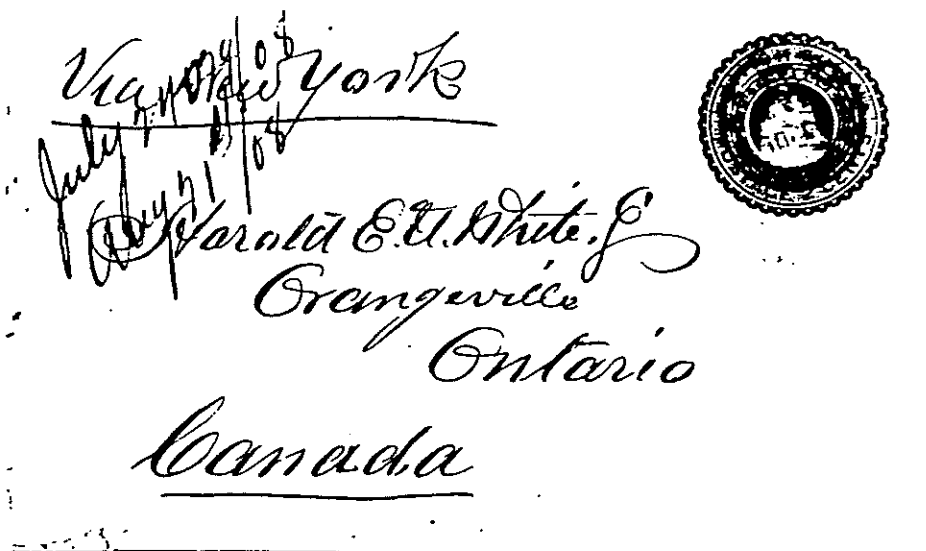 Via New York
July 27th/08
Aug 21/08
Harold E. A. White.
Orangeville
Ontario
Canada